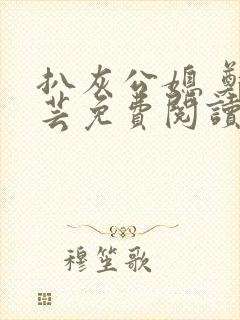 扒灰公媳 鄭
芸免費閱讀
穆笙歌